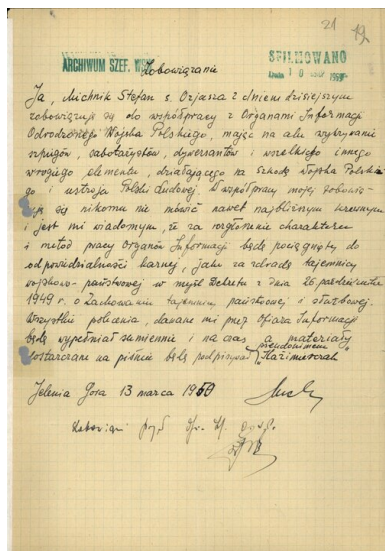 21
ARCHIWUM SZEF. WS
SFILMOWANO
10
Zobowiązanie
Ja, Michnik Stefan s. Ozjasza z dniem dzisiejszym
zobowiązuję się do współpracy z Organami Informacji
Odrodzonego Wojska Polskiego, mając na celu wykrywanie
szpiegów, sabotażystów, dywersantów i wszelkiego innego
wrogiego elementu, działającego na szkodę Wojska Polskie-
go i ustroju Polski Ludowej. O współpracy mojej zobowią-
zuję się nikomu nie mówić nawet najbliższym krewnym
i jest mi wiadomym, że za rozgłoszenie charakteru
i metod pracy Organów Informacji będę pociągnięty do
odpowiedzialności karnej, jako za zdradę tajemnicy
wojskowo-państwowej w myśl Dekretu z dnia 26 października
1949 r. o zachowaniu tajemnicy państwowej i służbowej.
Wszystkie polecenia, dawane mi przez Oficera Informacji
będę wypełniał sumiennie i na czas, a materiały
dostarczane na piśmie będę podpisywał pseudonimem
"Kazimierczak"
Jelenia Góra 13 marca 1950